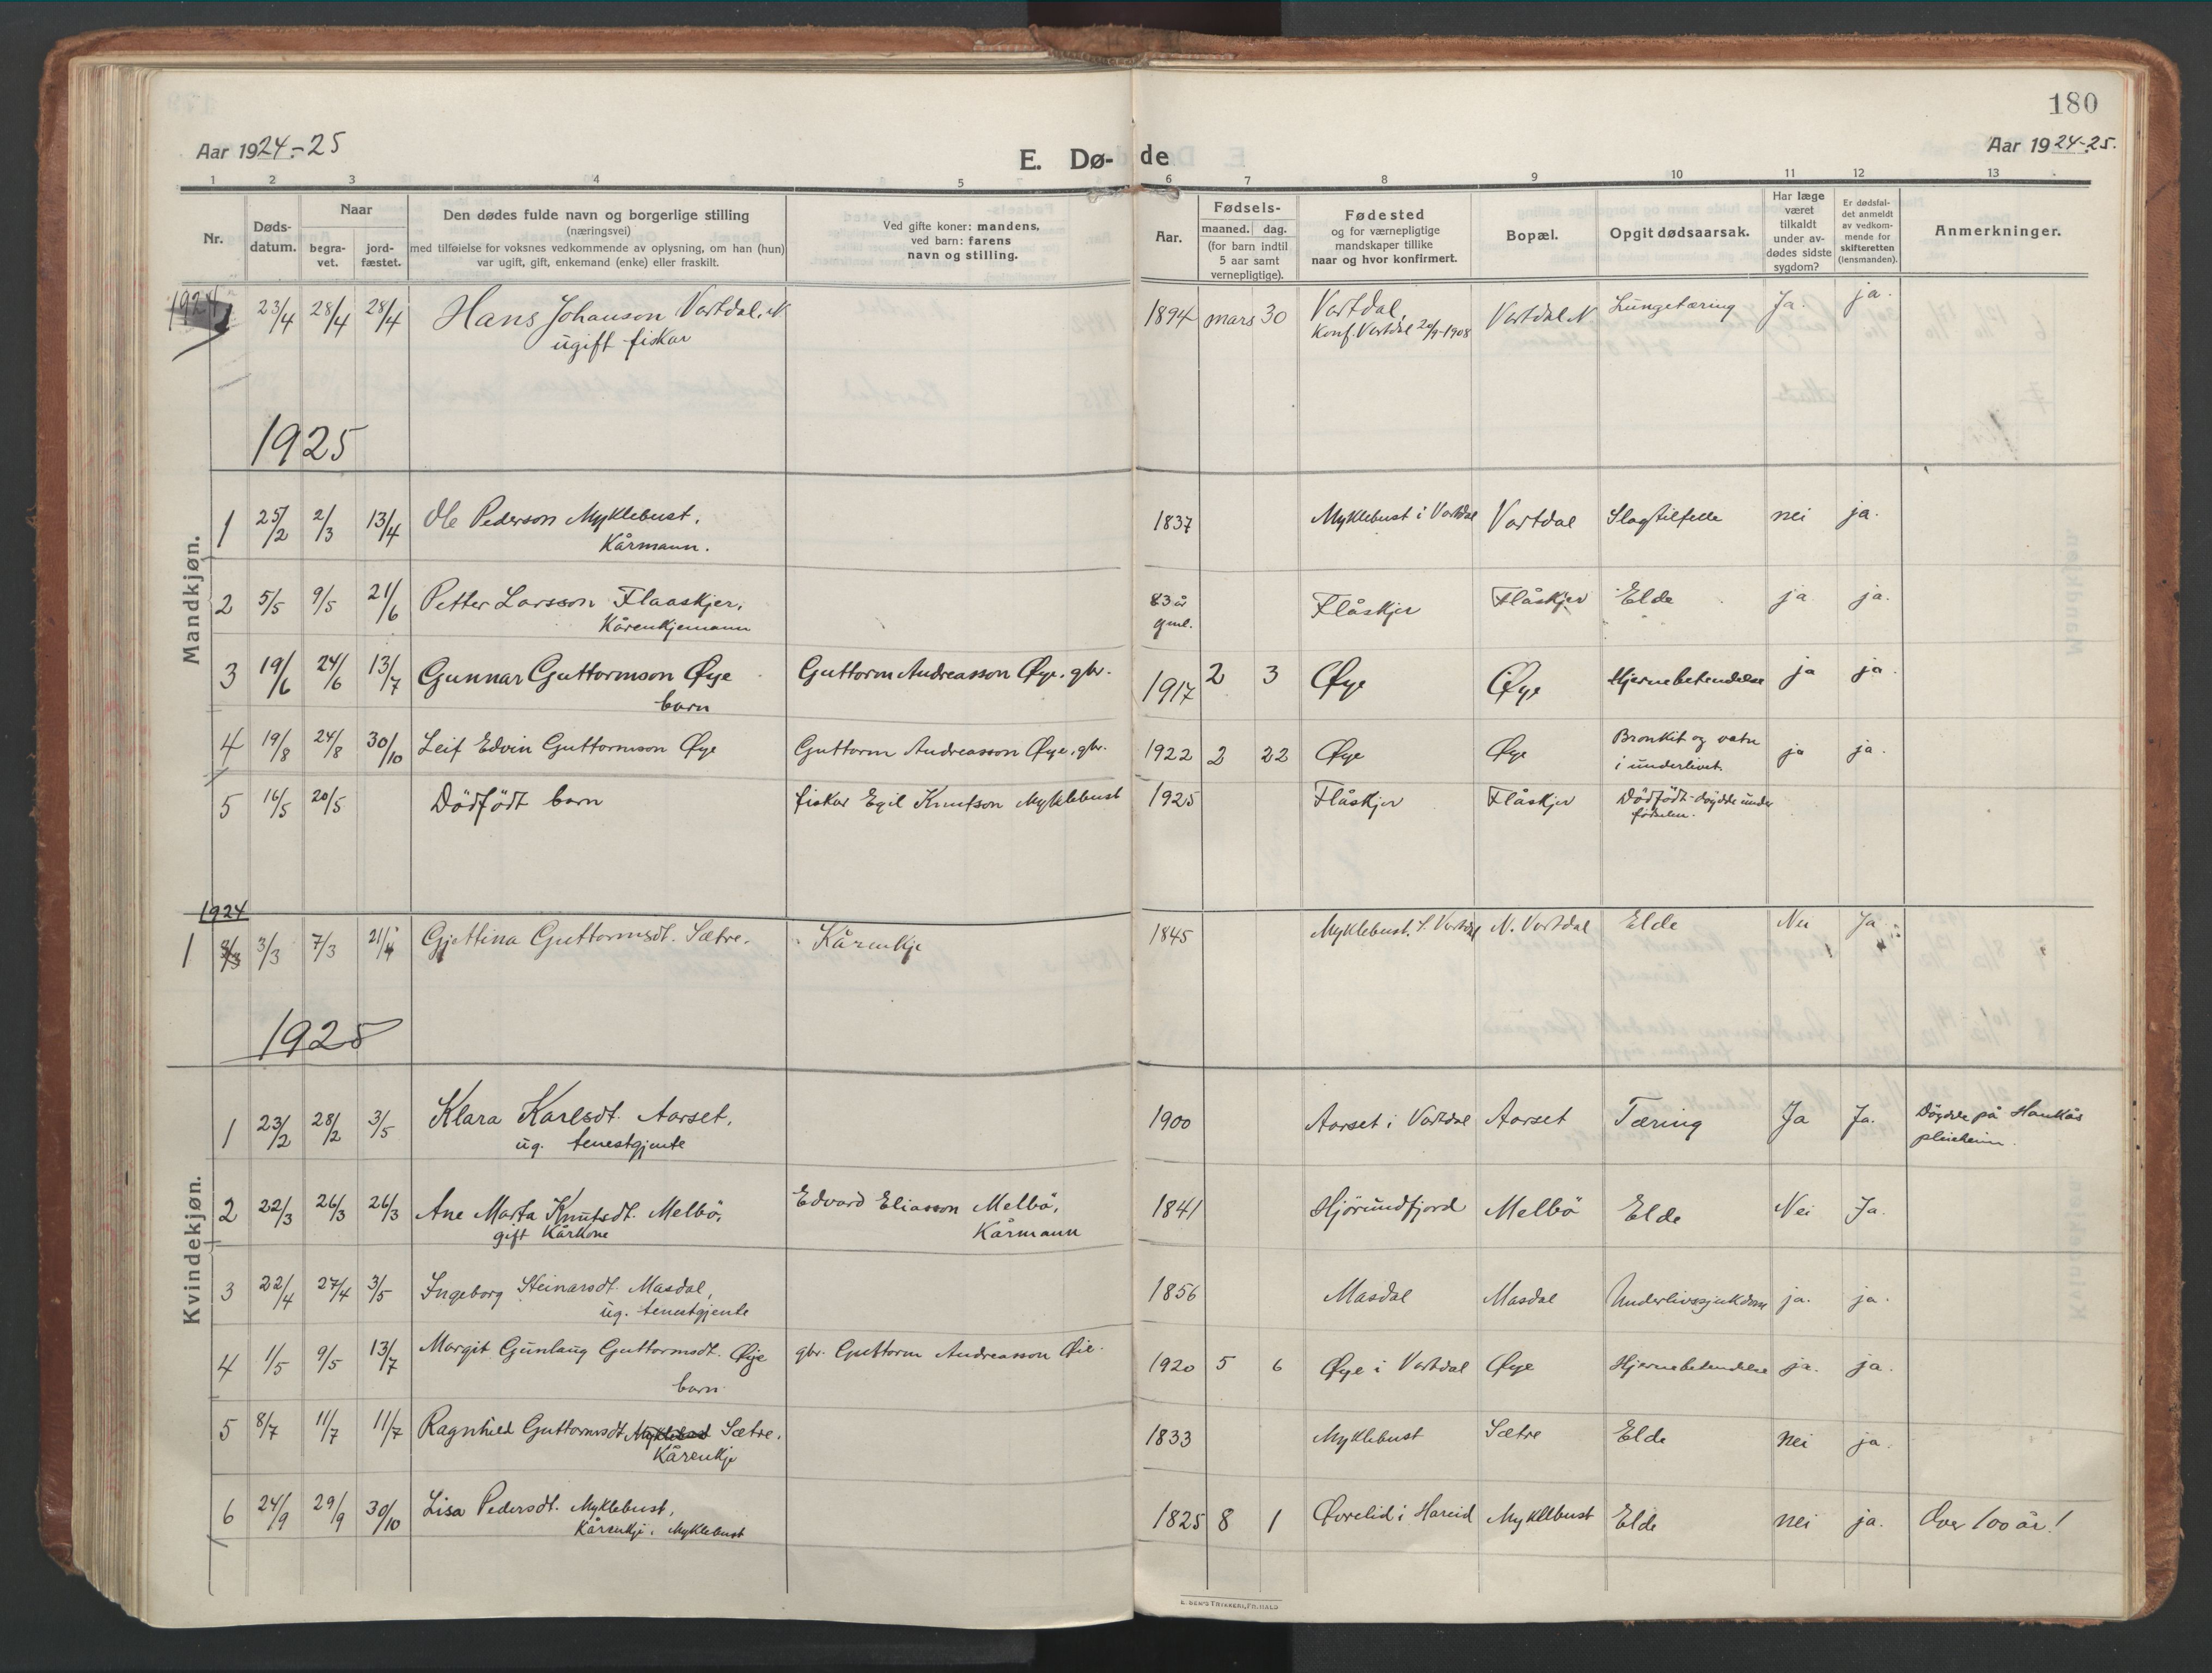 180
Aar 1924.-25
E. Dø- de
Aar 1924-25.
1 2 3 4 5 6 7 8 9 10 11 12 13
Nr.
Døds-
datum.
Naar
begra-
vet.
jord-
fæstet.
Den dødes fulde navn og borgerlige stilling
(næringsvei)
med tilføielse for voksnes vedkommende av oplysning, om han (hun)
var ugift, gift, enkemand (enke) eller fraskilt.
Ved gifte koner: mandens,
ved barn: farens
navn og stilling.
Aar.
Fødsels-
maaned. dag.
(for barn indtil
5 aar samt
vernepligtige).
Fødested
og for værnepligtige
mandskaper tillike
naar og hvor konfirmert.
Bopæl.
Opgit dødsaarsak.
Har læge
været
tilkaldt
under av-
dødes sidste
sygdom?
Er dødsfal-
det anmeldt
av vedkom-
mende for
skifteretten
(lensmanden).
Anmerkninger.
Mandkjøn.
1924 23/4 28/4 28/4 Hans Johanson Vartdal. N 1894 mars 30 Vartdal, Vartdal N Lungetæring Ja. ja.
ugift fiskar Konf. Vartdal 20/9-1908
1925
1 25/2 2/3 13/4 Ole Pederson Myklebust. 1837 Myklebust i Vartdal Vartdal Slagtilfelle nei ja.
Kårmann.
2 5/5 9/5 21/6 Petter Larsson Flaaskjer. 83 år Flåskjer Flåskjer Elde ja ja.
Kårenkjemann gml.
3 19/6 24/6 13/7 Gunnar Guttormson Øye Guttorm Andreasson Øye, gbr. 1917 2 3 Øye Øye Hjernebetendelse ja ja.
barn
4 19/8 24/8 30/10 Leif Edvin Guttormson Øye Guttorm Andreasson Øye, gbr. 1922 2 22 Øye Øye Bronkit og vatn ja ja.
i underlivet.
5 16/5 20/5 Dödfödt barn fiskar Egil Knutson Myklebust 1925 Flåskjer Flåskjer Dödfödt - döydde under
fødselen.
1924
1 3/3 3/3 7/3 21/4 Gjettina Guttormsdt. Sætre. Kårenkje 1845 Myklebust. S. Vartdal N. Vartdal Elde Nei Ja
1925
Kvindekjøn.
1 23/2 28/2 3/5 Klara Karlsdt. Aarset. 1900 Aarset i Vartdal Aarset Tæring Ja Ja. Döydde på Haukås
ug. tenestgjente pleieheim.
2 22/3 26/3 26/3 Ane Marta Knutsdt. Melbö, Edvard Eliasson Melbö, 1841 Hjörundfjord Melbö Elde Nei Ja.
gift Kårkone Kårmann
3 22/4 27/4 3/5 Ingeborg Steinarsdt. Masdal, 1856 Masdal Masdal Underlivssjukdom ja. ja.
ug. tenestgjente
4 1/5 9/5 13/7 Margit Gunlaug Guttormsdt. Øye gbr. Guttorm Andreasson Øie. 1920 5 6 Øye i Vartdal Øye Hjernebetendelse ja. ja.
barn
5 8/7 11/7 11/7 Ragnhild Guttormsdt Myklebust Sætre. 1833 Myklebust Sætre Elde nei ja.
Kårenkje
6 24/9 29/9 30/10 Lisa Pedersdt. Myklebust, 1825 8 1 Øvrelid i Hareid Myklebust Elde nei ja. Over 100 år!
Kårenkje. Myklebust